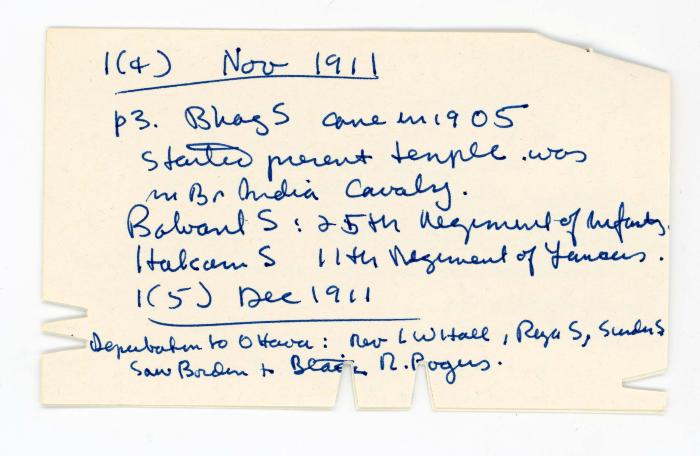 1(4) Nov 1911
p3. Bhag S came in 1905
started present temple. was
in Br India Cavalry.
Balwant S: 25th Regiment of Infantry.
Hakam S 11th Regiment of Lancers.
1(5) Dec 1911
Deputation to Ottawa: Rev L W Hall, Raja S, Sunder S
Saw Borden + R. Rogers.